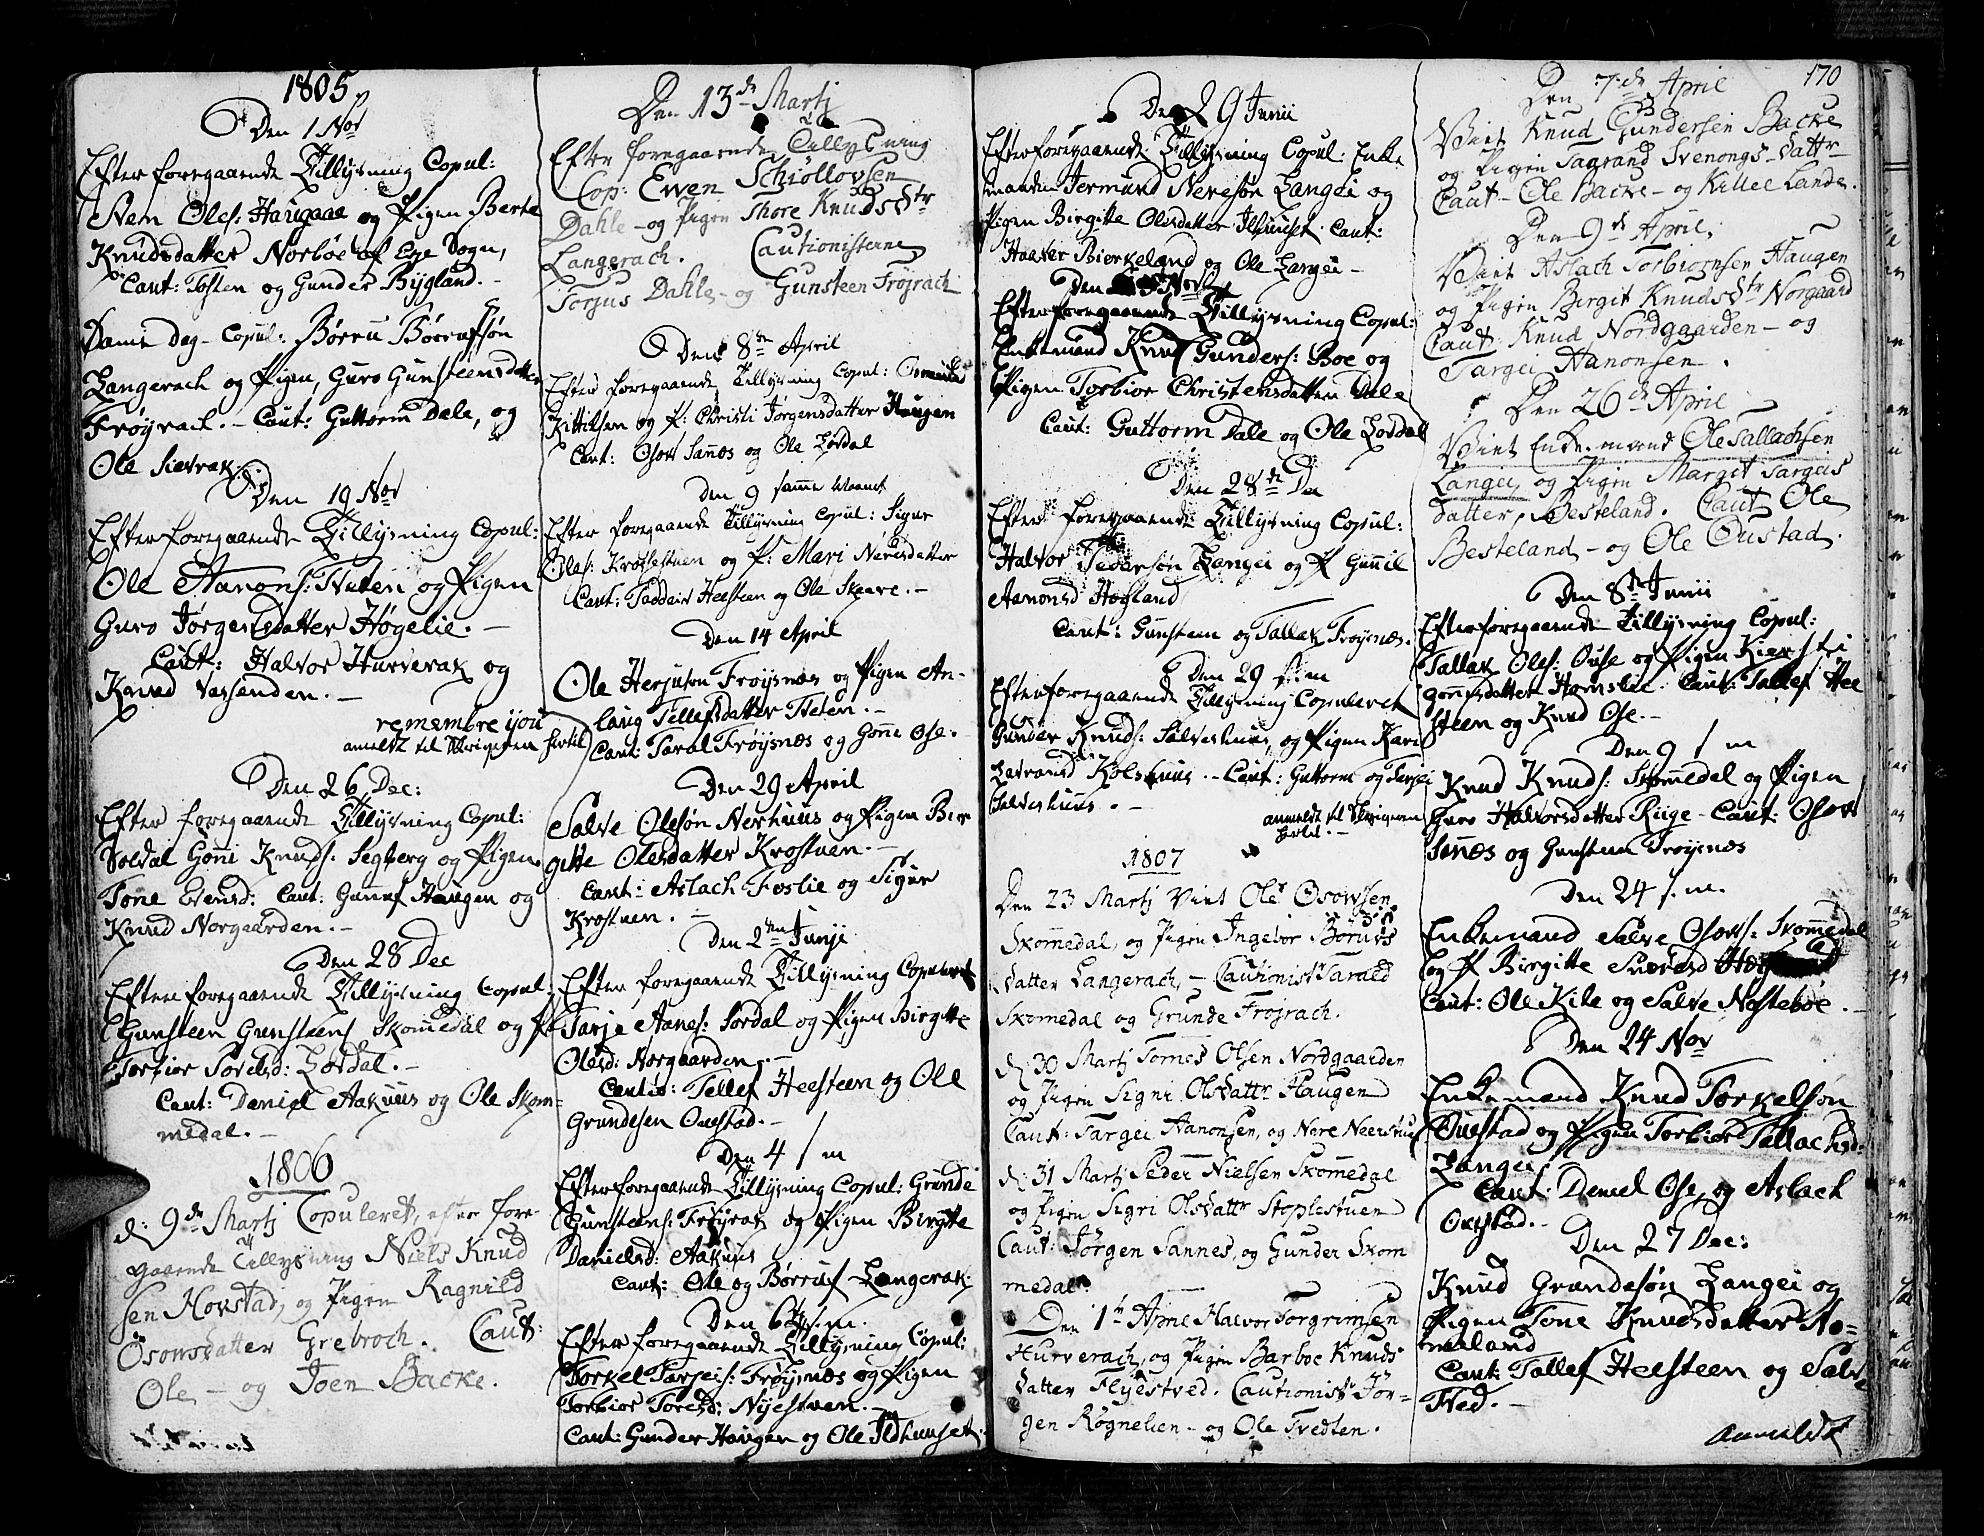 1805
Den 1 Nov
Efter foregaaende Tillysning Copul:
Sven Oles: Haugaae og Pigen Berte
Knudsdatter Norbøe af Eye Sogn,
Caut: Tosten og Gunder Bygland. -
Samme dag - Copul: Børru Børrufsøn
Langerach og Pigen, Guro Gunsteensdatter
Frøyrach. - Caut: Guttorm Dale, og
Ole
Den 19 Nov
Efter foregaaende Tillysning Copul:
Ole Aanons: Tveten og Pigen
Guro Jørgensdatter Høgelie. -
Caut: Halvor Hurverak og
Knud Vassenden. -
remembre you
anmeldt til Skriveren hertil
Den 26 Dec:
Efter foregaaende Tillysning Copul:
Goni Knuds: Segberg og Pigen
Tone Evensd: Caut: Gunuf Haugen og
Knud Norgaarden. -
Den 28 Dec
Efter foregaaende Tillysning Copul:
Gunsteen Gunsteens Skommedal og P:
Torbior Torelsd: Lordal. -
Caut: Daniel Aakuus og Ole Skom-
medal. -
1806
d: 9de Martj Copuleret, efter fore-
gaaende Tillysning Niels Knud
sen Hovstad, og Pigen Ragnild
Osonsdatter Grebroch. Caut:
Ole - og Joen Backe.
Den 13de Martj
Efter foregaaende Tillysning
Cop: Ewen Schiøllovsen
Dahle - og Pigen Thore Knudsdtr
Langerach. Cautionisterne
Torjus Dahle - og Gunsteen Frøjrach
Den 8de April
Efter foregaaende Tillysning Copul:
Kittilsen og P: Christi Jørgensdatter Haugen
Caut: Osov Sanes og Ole Lordal
Den 9 samme Maanet
Efter foregaaende Tillysning Copul: Sigur
Oles: Krostestuen og P: Mari Neresdatter
Caut: Taddeis Heesteen og Ole Skaare. -
Den 14 April
Ole Herjusøn Frøysnæs og Pigen An-
laug Tellefsdatter Tveten. -
Caut: Taral Frøysnæs og Gone Ose. -
Den 29 April
Salve Olesøn Nerhuus og Pigen Bir
gitte Olesdatter Krostuen. -
Caut: Aslach Foslie og Sigur
Krostuen. -
Den 2den Junji
Efter foregaaende Tillysning Copuleret
Tarje Aanes: Sordal og Pigen Birgitte
Olesd: Norgaarden. -
Cautio: Tellef Heesteen og Ole
Grundesen Ouestad. -
Den 4 s m
Efter foregaaende Tillysning Copul: Grunde
Gunsteens: Frøyrak og Pigen Birgitte
Danielsd: Aakuus
Caut: Ole og Børruf Langerak.
Den 6 s. m.
Efter foregaaende Tillysning Copul:
Torkel Tarjeis: Frøysnæs og Pigen
Torbior Toresd: Nyestuen. -
Caut: Gunder Haugen og Ole Ildhuuset.
Den 29 Junii
Efter foregaaende Tillysning Copul: Enke
manden Jermund Neresøn Langei og
Pigen Birgitte Olesdatter Ilhuuset. Caut:
Haaver Bierkeland og Ole Langei -
Den Nov
Efter foregaaende Tillysning Copul:
Enkemand Knut Gunders: Boe og
Pigen Torbior Christensdatten Dale
Caut: Guttorm Dale og Ole Lordal
Den 28de De
Efter foregaaende Tillysning Copul:
Halvor Langei og P Gunil
Aanonsd Høgland
Caut: Gunsteen og Tallak Frøysnæs.
Den 29 s. m
Efter foregaaende Tillysning Copuleret
Gunder Knuds: Salveshuus, og Pigen Kari
Lavransd Kolshuus. - Caut: Guttorm og Tarjei
Salveshuus. -
anmeldt til Skriveren
hertil. -
1807
Den 23 Martj Viet Ole Osowsen
Skomedal, og Pigen Ingebor Børufs
datter Langerach, - Cautionist Tarald
Skomedal og Grunde Frøjrach.
d: 30 Martj Tornes Olsen Nordgaarden
og Pigen Signi Olsdattr Haugen
Caut: Targei Aanonsen, og Nere Neerstuf
d: 31 Martj Peder Nielsen Skomedal
og Pigen Sigri Olsdattr Stoplestuen
Caut: Jørgen Sannes, og Gunder Skom
medal.
Den 1te April Halvor Torgrimsen
Hurverach, og Pigen Barboe Knuds
datter Flyestved. Cautionist Jør-
gen Røgnelien - og Ole Tvedten.
170
Den 7de April
Viet Knud Gundersen Backe
og Pigen Tagrand Svenongs-dattr
Caut - Ole Backe - og Killee Lande.
Den 9de April,
Viet Aslach Torbiornsen Haugen
og Pigen Birgit Knudsdtr Norgaard
Caut: Knud Nordgaarden - og
Targei Aanonsen.
Den 26de April
Viet Enkemand Ole Tallachsen
Langei, og Pigen Margit Targeis
datter, Besteland. Caut Ole
Besteland - og Ole Oustad.
Den 8de Junii
Efter foregaaende Tillysning Copul:
Tallak Oles: Ouse og Pigen Kiersti
Homslie. Caut: Tallef Hee
steen og Knud Ose. -
Den 9 s m
Knud Knuds: Skomedal og Pigen
Guro Halvorsdatter Riige - Caut: Osow
Sanæs og Gunsteen Frøysnæs
Den 24 s. m.
Enkemand Salve Osovs: Skommedal
og P Birgitte
Caut: Ole Kile og Salve Nostebøe. -
Den 24 Nov
Enkemand Knud Torkelsøn
Ouestad og Pigen Torbior Tallachsd:
Langei
Caut: Daniel Ose og Aslach
Ouestad. -
Den 27 Dec:
Knud Grundesøn Langei og
Pigen Tone Knudsdatter Ao-
meland
Caut: Tallef Heesteen og Salve
Tved. -
Anmeldt